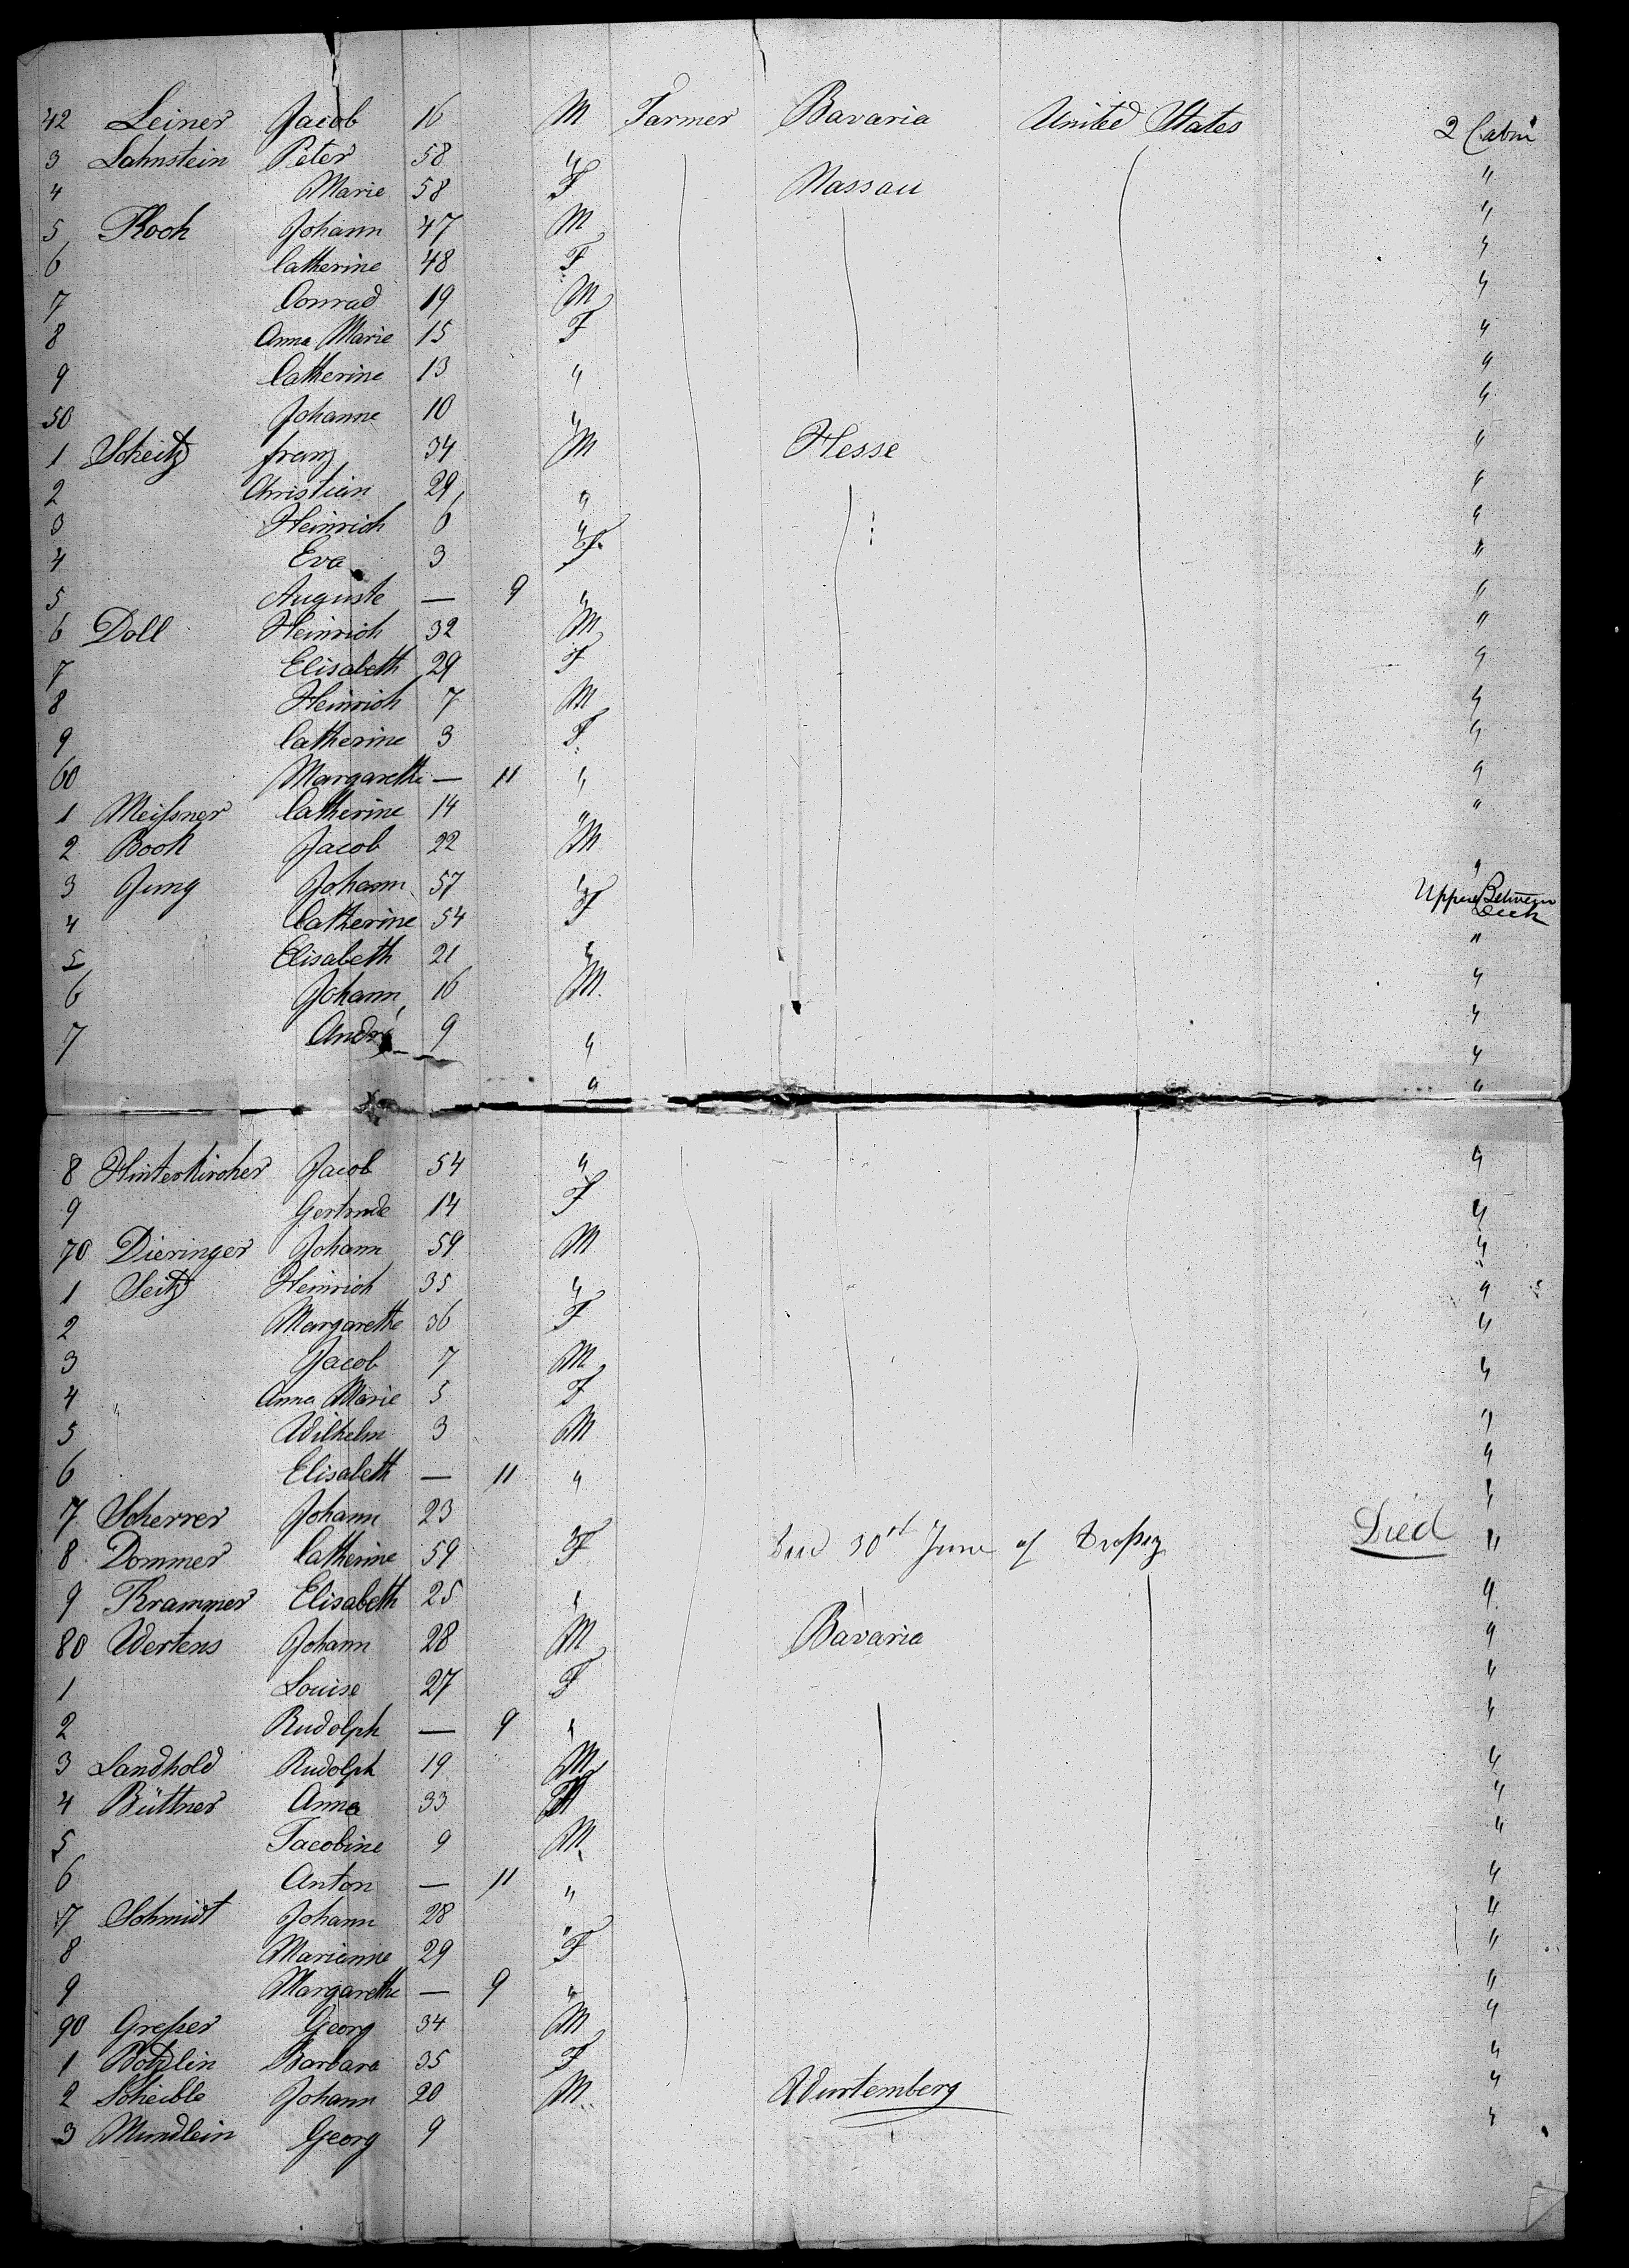 42 Leiner Jacob 16 M Farmer Bavaria United States 2 Cabin
3 Lahnstein Peter 58 " "
4 Marie 58 F Nassau "
5 Kooh Johann 47 M "
6 Catherine 48 F "
7 Conrad 19 M "
8 Anna Marie 15 F "
9 Catherine 13 " "
50 Johanne 10 " "
1 Scheitz franz 34 M Hesse "
2 Christian 29 " "
3 Heinrich 6 " "
4 Eva 3 F "
5 Auguste — 9 " "
6 Doll Heinrich 32 M "
7 Elisabeth 29 F "
8 Heinrich 7 M "
9 Catherine 3 F "
60 Margarethe — 11 " "
1 Meißner Catherine 14 " "
2 Book Jacob 22 M "
3 Jung Johann 57 " Upper Between Deck
4 Catherine 54 F "
5 Elisabeth 21 " "
6 Johann 16 M "
7 André 9 " "
" "
8 Hinterkircher Jacob 54 " "
9 Gertrude 14 F "
70 Dieringer Johann 59 M "
1 Seitz Heinrich 35 " "
2 Margarethe 36 F "
3 Jacob 7 M "
4 " Anna Marie 5 F "
5 Wilhelm 3 M "
6 Elisabeth — 11 " "
7 Scherrer Johann 23 "
8 Dommer Catherine 59 F Died 30st June of Dropsy Died "
9 Krammer Elisabeth 25 " "
80 Wertens Johann 28 M Bavaria "
1 Louise 27 F "
2 Rudolph — 9 " "
3 Landhold Rudolph 19 M "
4 Büttner Anna 33 F "
5 Jacobine 9 M "
6 Anton — 11 " "
7 Schmidt Johann 28 " "
8 Marianne 29 F "
9 Margarethe — 9 " "
90 Greßer Georg 34 M "
1 Botzlin Barbara 35 F "
2 Scheible Johann 20 M Wurtemberg "
3 Mundlein Georg 9 "